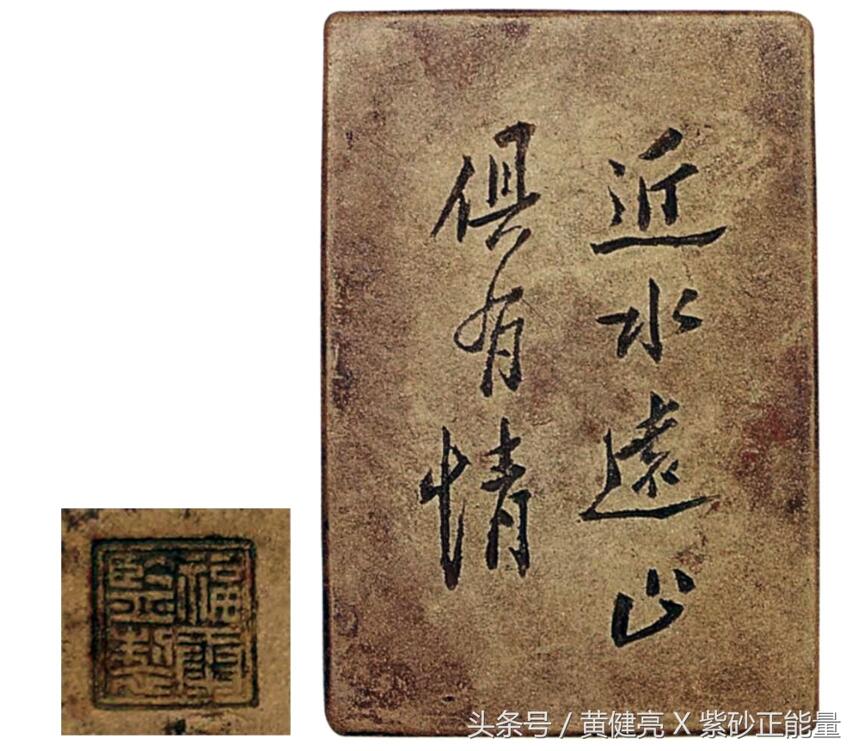 近水遠山
俱有情
福
監製
头条号 / 黄健亮 X 紫砂正能量